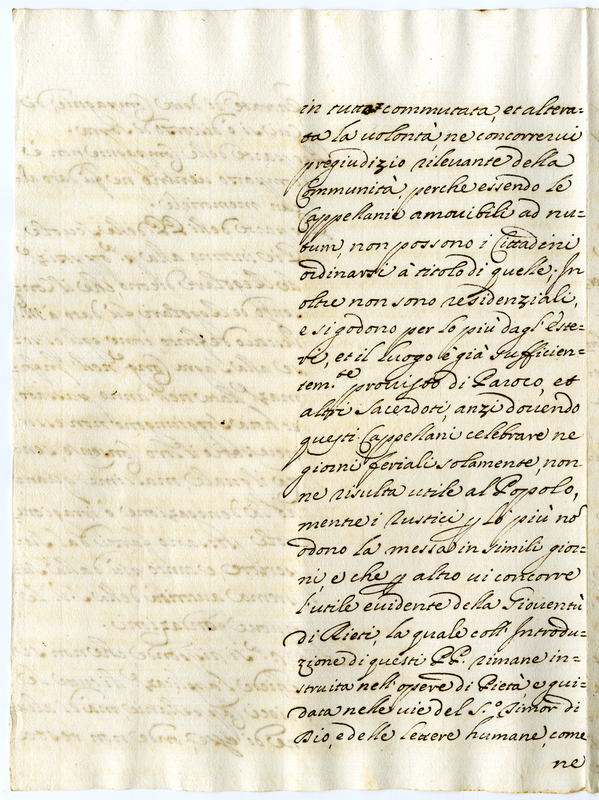 in tutto commutata, et altera=
ta la volontà, ne concorrervi
pregiudizio rilevante della
Communità. perche essendo le
Cappellanie amovibili ad nu=
tum, non possono i Cittadini
ordinarsi à titolo di quelle; In
oltre non sono residenziali,
e si godono per lo più dagl'este=
ri, et il luogo è già sufficien=
tem.te provisto di Paroco, et
altri Sacerdoti, anzi dovendo
questi Cappellani celebrare ne
giorni feriali solamente, non
ne risulta utile al Popolo,
mentre i rustici p lo più nō
odono la messa in simili gior=
ni, e che p altro vi concorre
l'utile evidente della Gioventù
di Rieti, la quale coll'Introdu=
zione di questi PP. rimane in=
struita nell'opere di Pietà, e gui=
data nelle vie del S.o Timor di
Dio, e delle lettere humane, come
ne